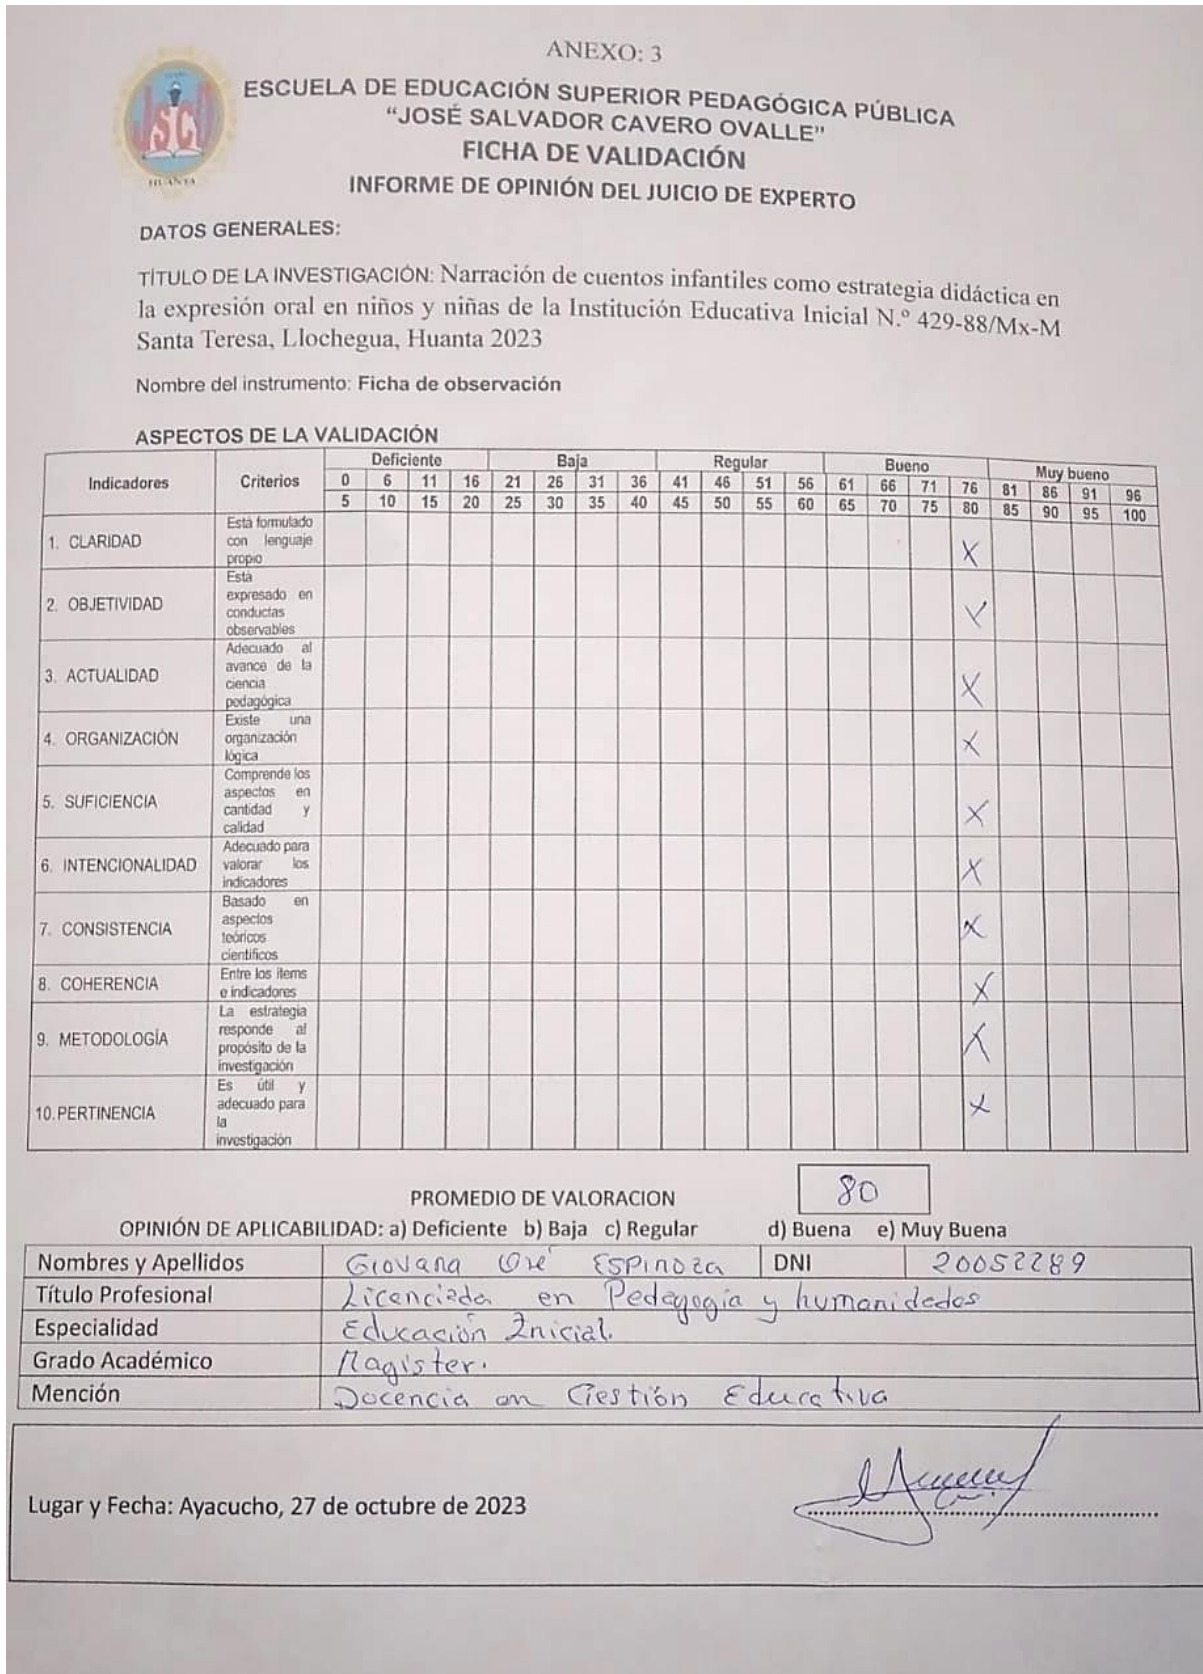 ANEXO: 3
ESCUELA DE EDUCACIÓN SUPERIOR PEDAGÓGICA PÚBLICA
"JOSÉ SALVADOR CAVERO OVALLE"
FICHA DE VALIDACIÓN
INFORME DE OPINIÓN DEL JUICIO DE EXPERTO
HUANTA
DATOS GENERALES:
TÍTULO DE LA INVESTIGACIÓN: Narración de cuentos infantiles como estrategia didáctica en
la expresión oral en niños y niñas de la Institución Educativa Inicial N.º 429-88/Mx-M
Santa Teresa, Llochegua, Huanta 2023
Nombre del instrumento: Ficha de observación
ASPECTOS DE LA VALIDACIÓN
Indicadores Criterios Deficiente Baja Regular Bueno Muy bueno
0 6 11 16 21 26 31 36 41 46 51 56 61 66 71 76 81 86 91 96
5 10 15 20 25 30 35 40 45 50 55 60 65 70 75 80 85 90 95 100
1. CLARIDAD
Está formulado
con lenguaje
propio
X
2. OBJETIVIDAD
Está
expresado en
conductas
observables
X
3. ACTUALIDAD
Adecuado al
avance de la
ciencia
pedagógica
X
4. ORGANIZACIÓN
Existe una
organización
lógica
X
5. SUFICIENCIA
Comprende los
aspectos en
cantidad y
calidad
X
6. INTENCIONALIDAD
Adecuado para
valorar los
indicadores
X
7. CONSISTENCIA
Basado en
aspectos
teóricos
científicos
X
8. COHERENCIA
Entre los ítems
e indicadores
X
9. METODOLOGÍA
La estrategia
responde al
propósito de la
investigación
X
10. PERTINENCIA
Es útil y
adecuado para
la
investigación
X
PROMEDIO DE VALORACION 80
OPINIÓN DE APLICABILIDAD: a) Deficiente b) Baja c) Regular d) Buena e) Muy Buena
Nombres y Apellidos Giovana Oré Espinoza DNI 20052289
Título Profesional Licenciada en Pedagogía y humanidades
Especialidad Educación Inicial.
Grado Académico Magister.
Mención Docencia en Gestión Educativa
Lugar y Fecha: Ayacucho, 27 de octubre de 2023